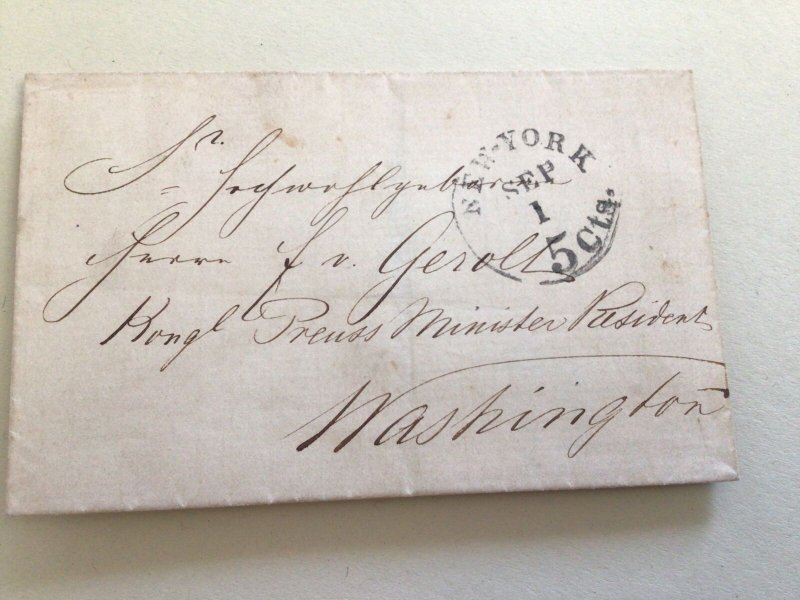 NEW-YORK
SEP
1
5 Cts.
Sr. Hochwohlgeboren
Herrn F v. Gerolt
Kongl Preuss Minister Resident
Washington